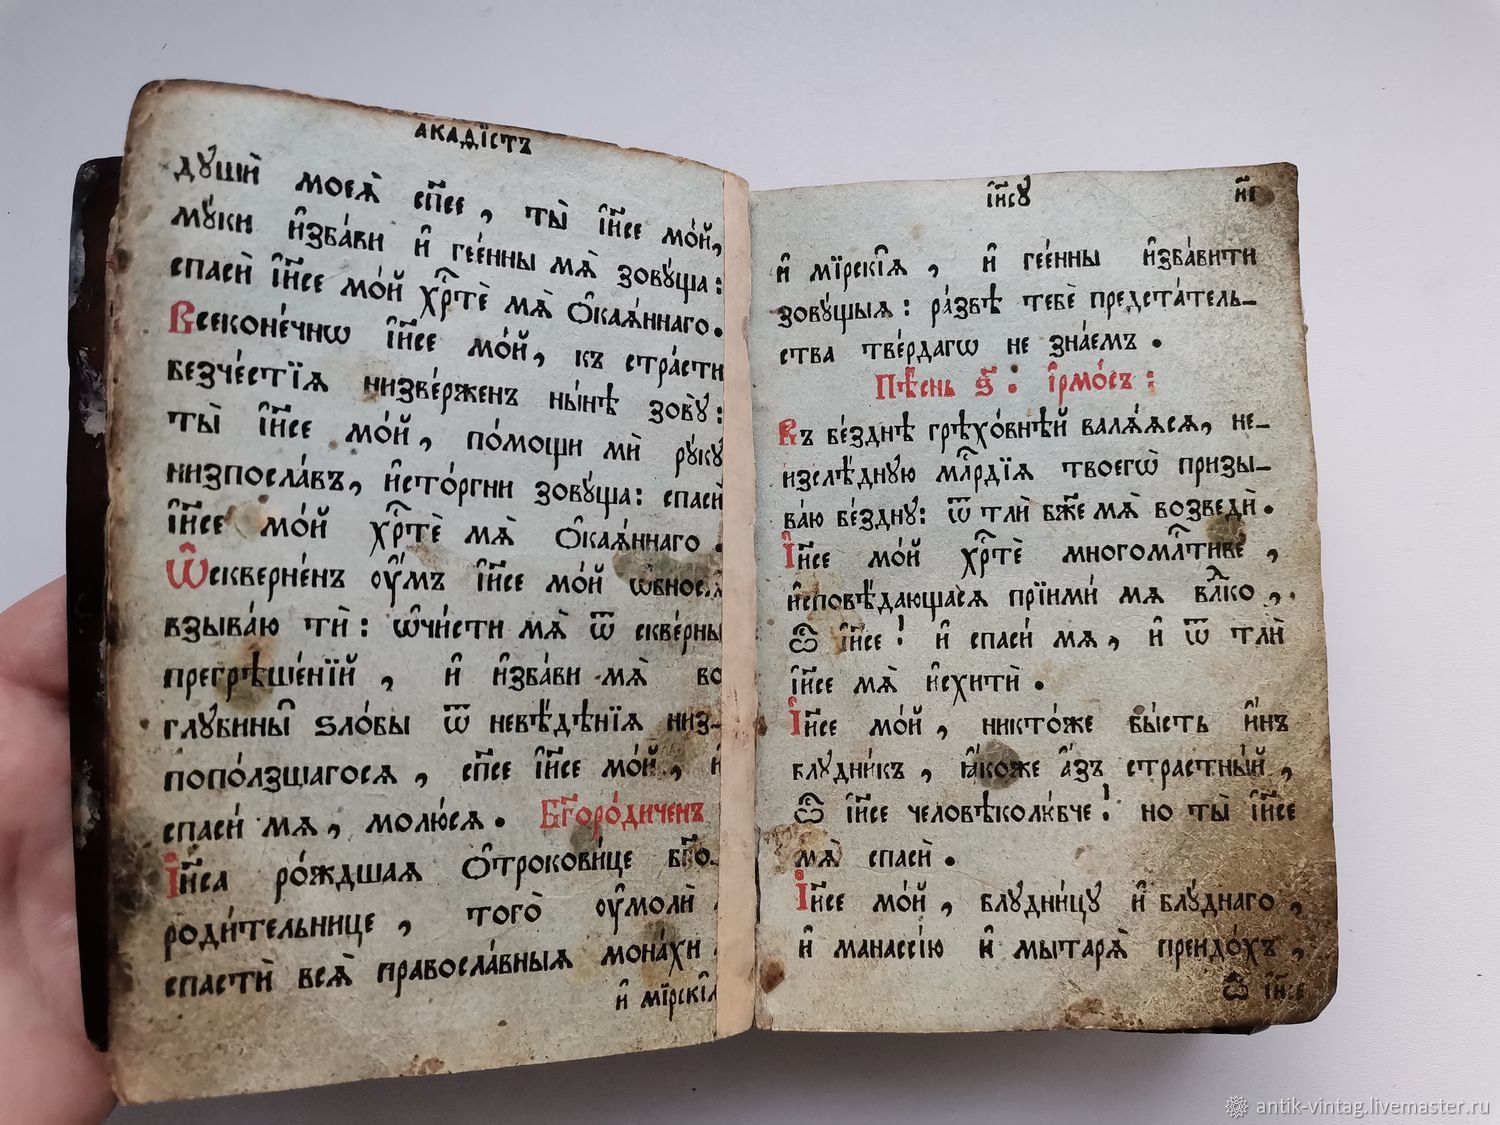 АКАѲІСТЪ
дꙋшѝ моеѧ̀ сп҃се, ты̀ і҆и҃се мо́й,
мꙋ́ки и҆зба́ви и҆ гее́нны мѧ̀ зовꙋ́ща:
спасѝ і҆и҃се мо́й хрⷭ҇тѐ мѧ̀ ѻ҆каѧ́ннаго.
Всеконе́чнѡ і҆и҃се мо́й, къ стра́сти
безче́стїѧ низве́рженъ ны́нѣ зовꙋ̀:
ты̀ і҆и҃се мо́й, по́мощи мѝ рꙋ́кꙋ
низпосла́въ, и҆сто́ргни зовꙋ́ща: спасѝ
і҆и҃се мо́й хрⷭ҇тѐ мѧ̀ ѻ҆каѧ́ннаго.
Ѡ҆скверне́нъ ѹ҆́мъ і҆и҃се мо́й ѡ҆бносѧ̀
взыва́ю тѝ: ѡ҆чи́сти мѧ̀ ѿ скве́рны
прегрѣше́нїй, и҆ и҆зба́ви мѧ̀ во
глꙋбины̀ ѕло́бы ѿ невѣ́дѣнїѧ низ-
попо́лзшагосѧ, сп҃се і҆и҃се мо́й, и҆
спаси́ мѧ, молю́сѧ. Бг҃оро́диченъ
І҆и҃са ро́ждшаѧ ѻ҆трокови́це бг҃о-
роди́тельнице, того̀ ѹ҆молѝ
спастѝ всѧ̀ правосла́вныѧ мона́хи
и҆ мїрскі̑ѧ
І҆И҃СꙊ
н҃е
и҆ мїрскі̑ѧ, и҆ гее́нны и҆зба́вити
зовꙋ́щыѧ: ра́звѣ тебѐ предста́тель-
ства тве́рдагѡ не зна́емъ.
Пѣ́снь ѕ҃. і҆рмо́съ:
Въ бе́зднѣ грѣхо́внѣй валѧ́ѧсѧ, не-
изслѣ́днꙋю млⷭ҇рдїѧ твоегѡ̀ призы-
ва́ю бе́зднꙋ: ѿ тлѝ бж҃е мѧ̀ возведѝ.
І҆и҃се мо́й хрⷭ҇тѐ многомлⷭ҇тиве,
и҆сповѣ́дающасѧ прїими́ мѧ влⷣко,
ѽ і҆и҃се! и҆ спаси́ мѧ, и҆ ѿ тлѝ
і҆и҃се мѧ̀ и҆схитѝ.
І҆и҃се мо́й, никто́же бы́сть и҆́нъ
блꙋдни́къ, ꙗ҆́коже а҆́зъ стра́стный,
ѽ і҆и҃се человѣколю́бче! но ты̀ і҆и҃се
мѧ̀ спасѝ.
І҆и҃се мо́й, блꙋдни́цꙋ и҆ блꙋ́днаго,
и҆ манассі́ю и҆ мытарѧ̀ преидо́хъ,
ѽ і҆и҃се
antik-vintag.livemaster.ru